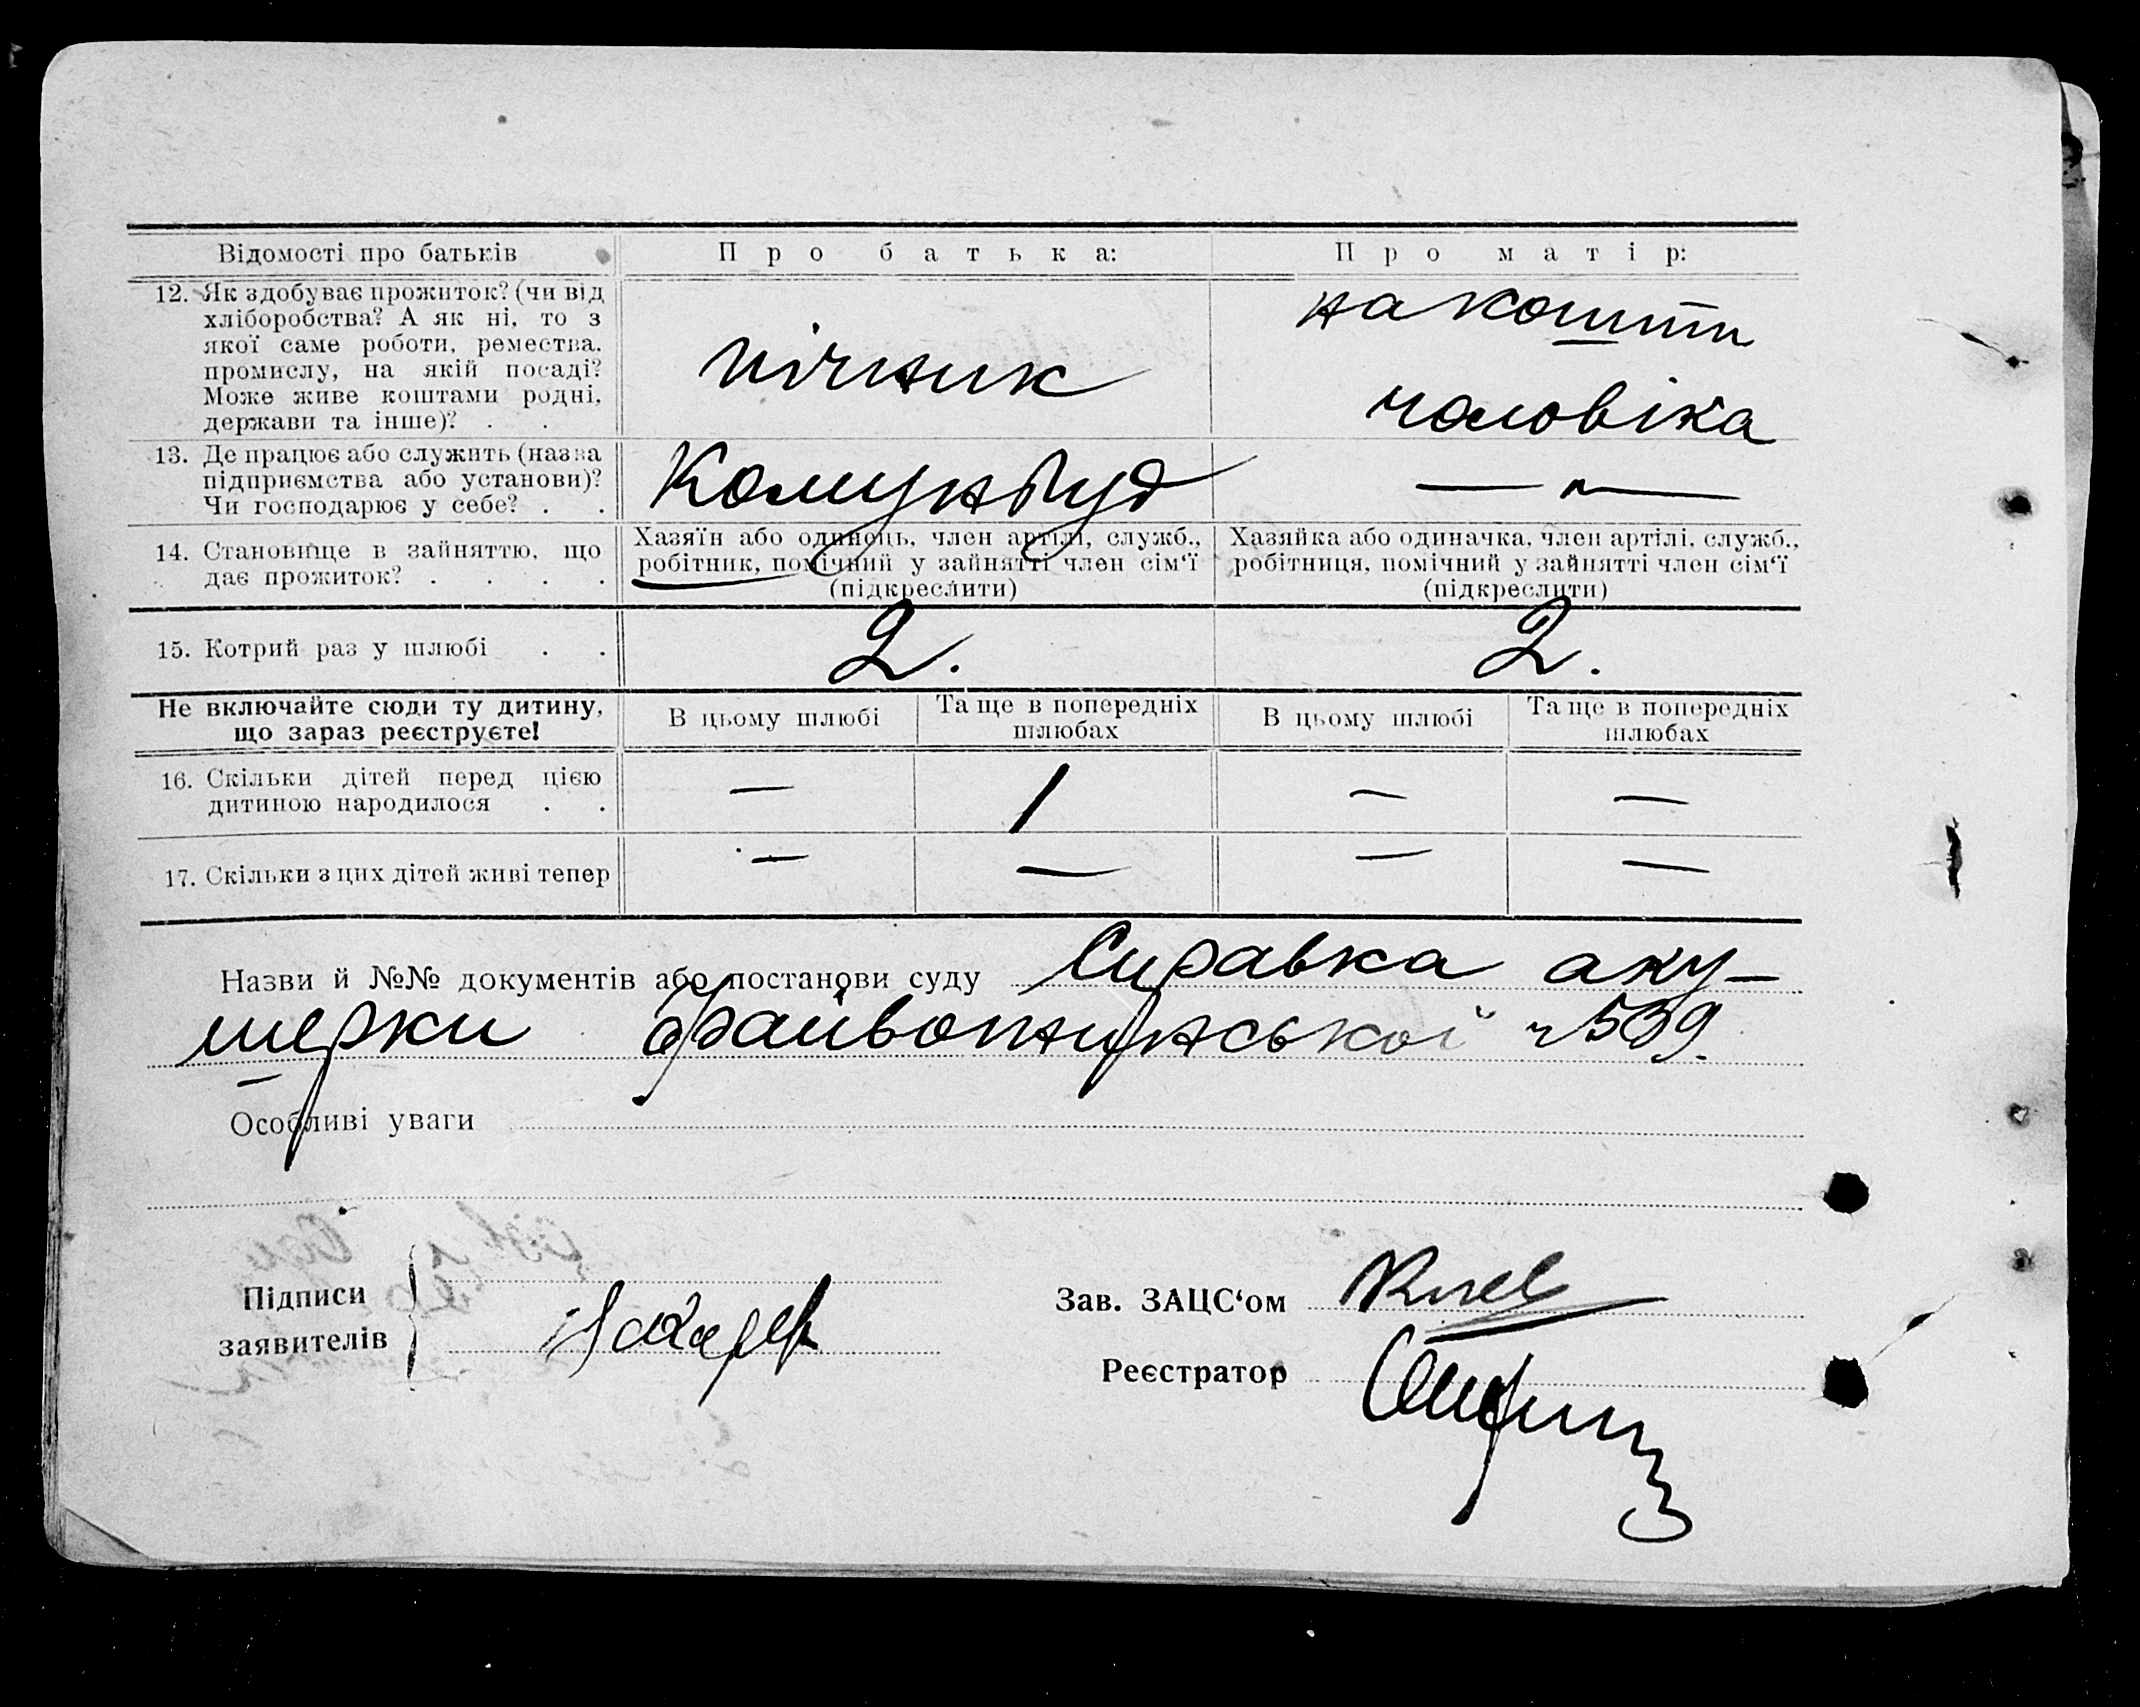 Відомості про батьків
Про батька:
Про матір:
12. Як здобуває прожиток? (чи від
хліборобства? А як ні, то з
якої саме роботи, ремества,
промислу, на якій посаді?
Може живе коштами родні,
держави та інше)? . .
пічник
на кошти
чоловіка
13. Де працює або служить (назва
підприємства або установи)?
Чи господарює у себе? . .
Комунбуд
— " —
14. Становище в зайняттю, що
дає прожиток? . . . .
Хазяїн або одинець, член артілі, служб.,
робітник, помічний у зайнятті член сім‘ї
(підкреслити)
Хазяйка або одиначка, член артілі, служб.,
робітниця, помічний у зайнятті член сім‘ї
(підкреслити)
15. Котрий раз у шлюбі . .
2.
2.
Не включайте сюди ту дитину,
що зараз реєструєте!
В цьому шлюбі
Та ще в попередніх
шлюбах
В цьому шлюбі
Та ще в попередніх
шлюбах
16. Скільки дітей перед цією
дитиною народилося . .
—
1
—
—
17. Скільки з цих дітей живі тепер
—
—
—
—
Назви й №№ документів або постанови суду Справка аку-
шерки 539.
Особливі уваги
Підписи
заявителів
Зав. ЗАЦС‘ом
Реєстратор